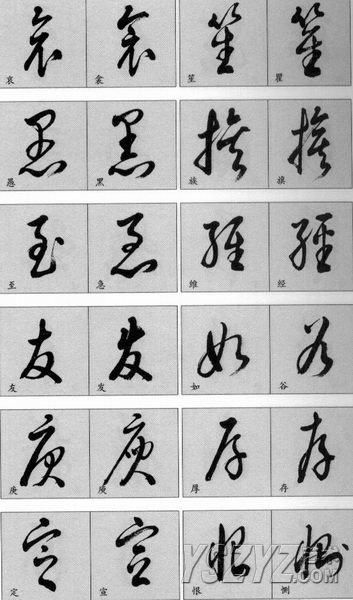 哀 衾 笙 瞿
愚 黑 族 旗
至 急 維 经
友 发 如 谷
庚 庾 厚 存
定 宣 恨 恻